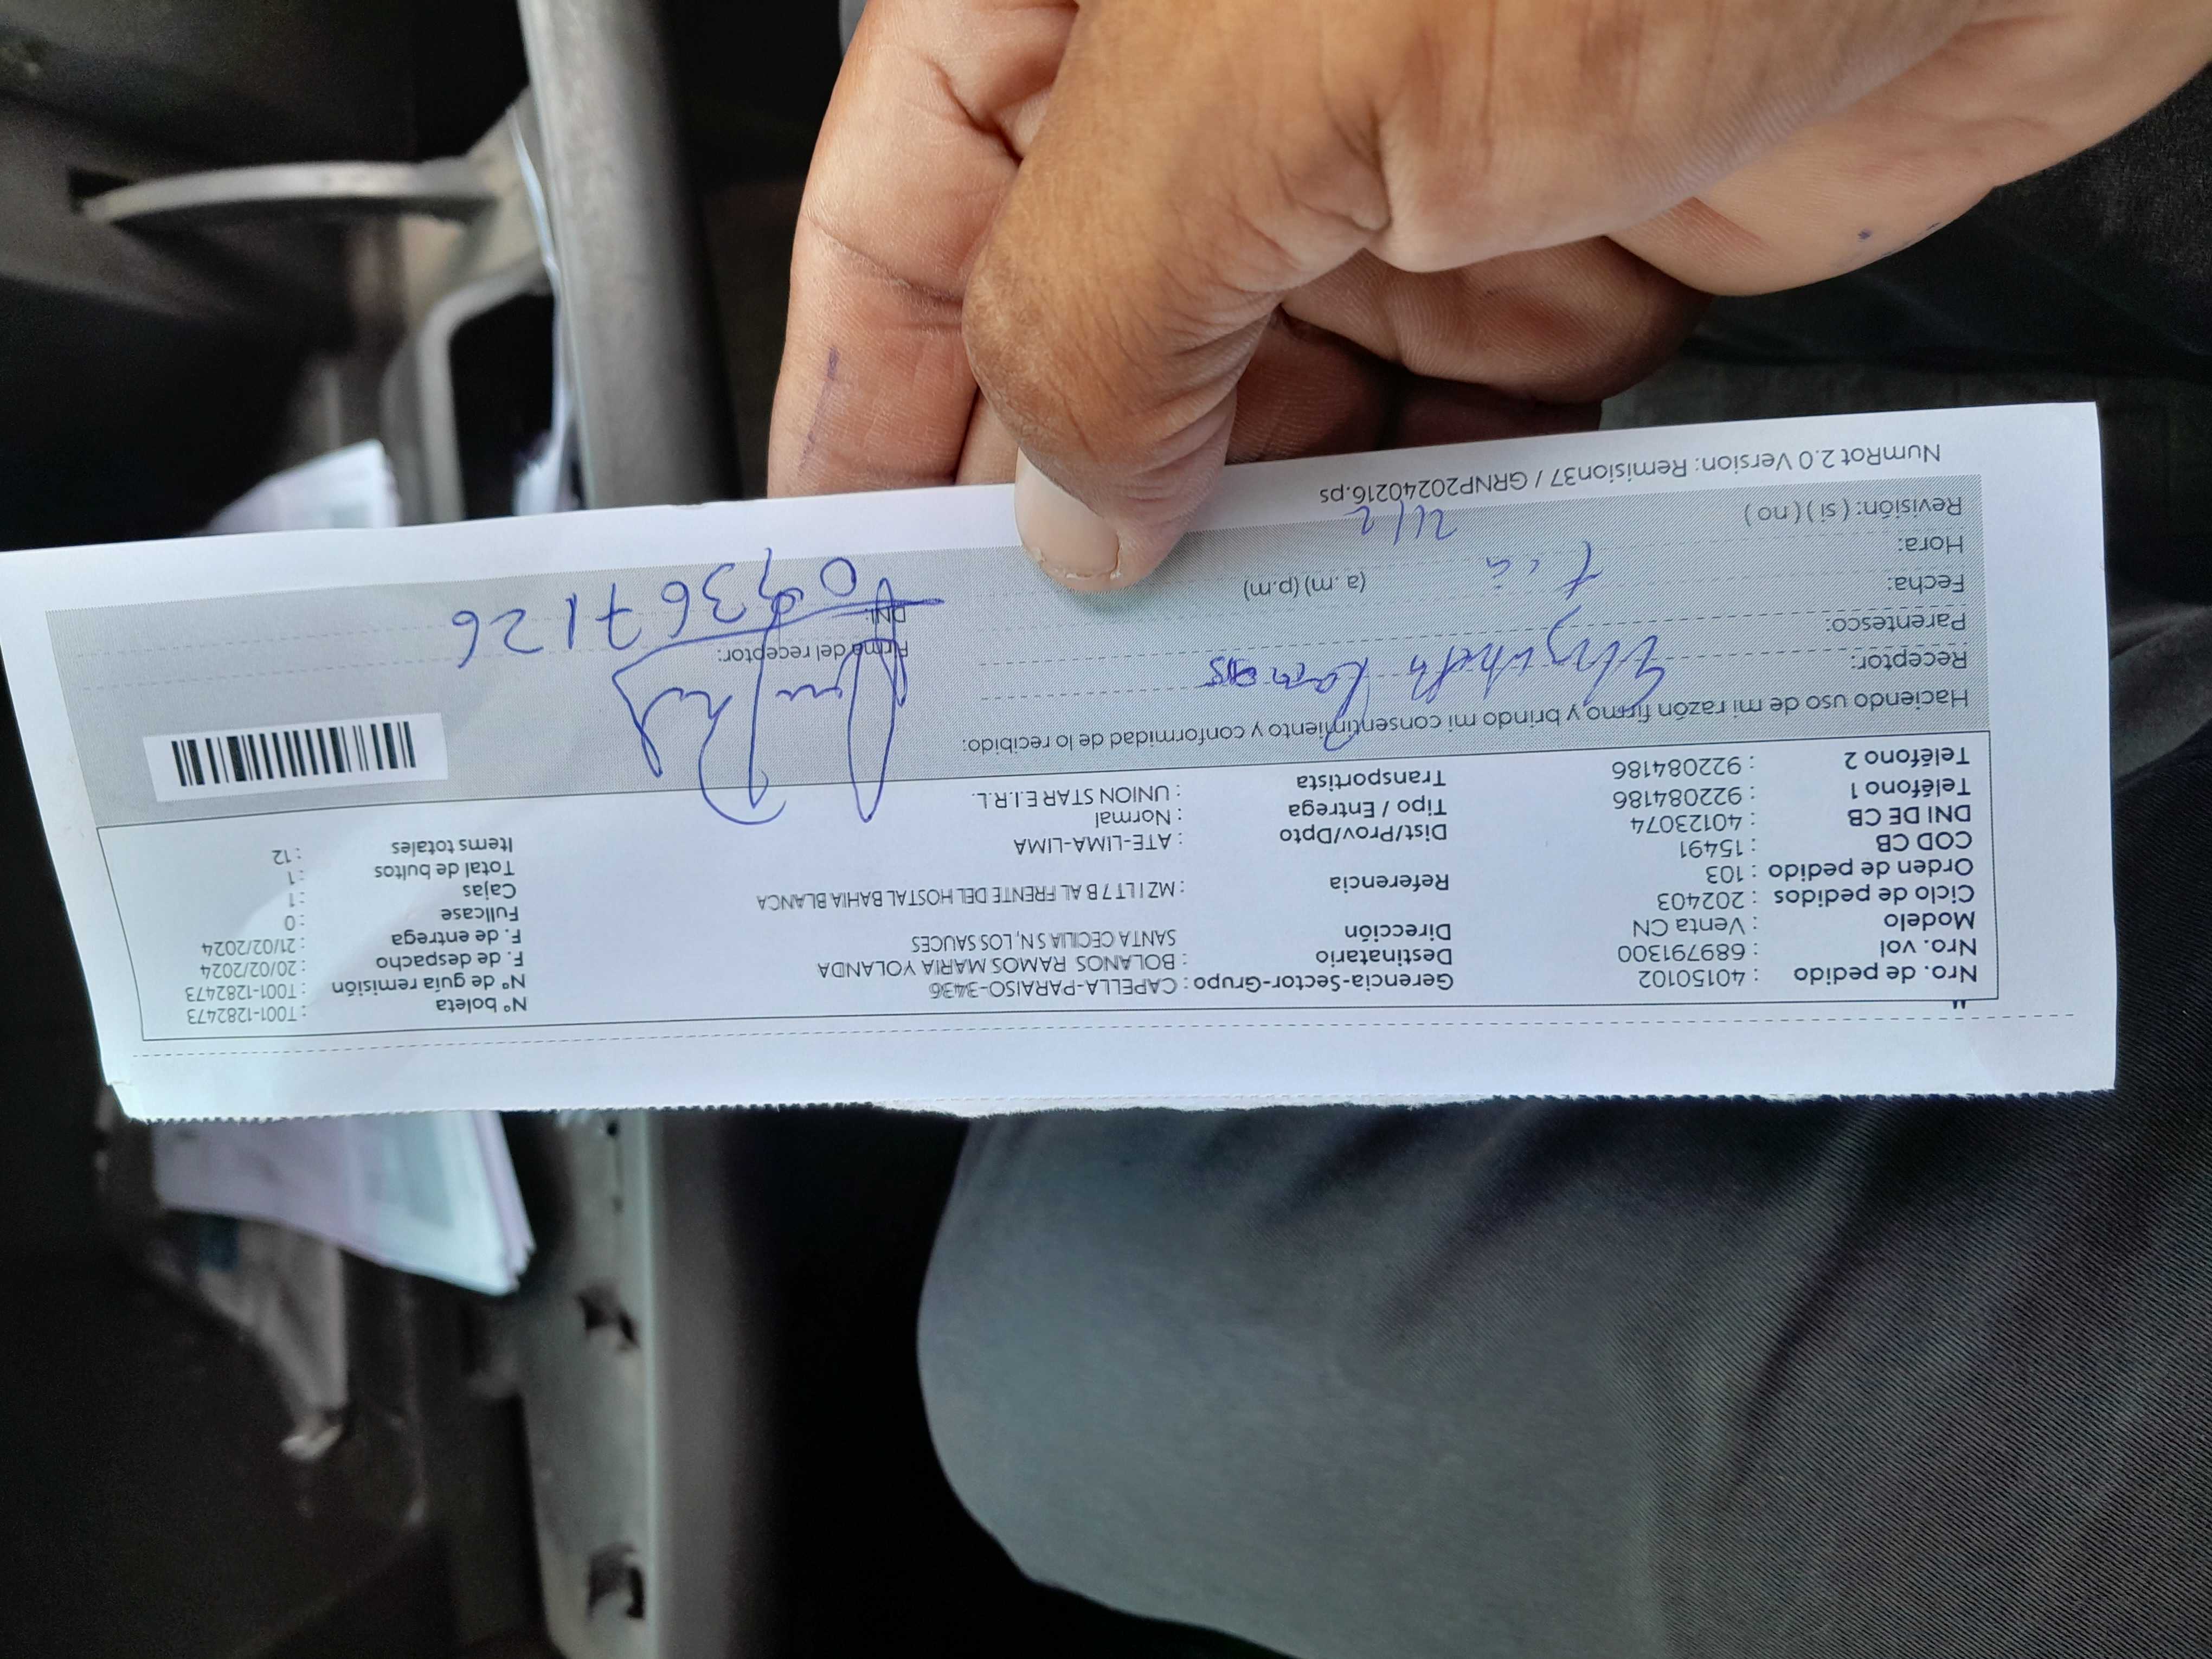 Nro. de pedido : 40150102
Nro. vol : 689791300
Modelo : Venta CN
Ciclo de pedidos : 202403
Orden de pedido : 103
COD CB : 15491
DNI DE CB : 40123074
Teléfono 1 : 922084186
Teléfono 2 : 922084186
Gerencia-Sector-Grupo : CAPELLA-PARAISO-3436
Destinatario : BOLANOS RAMOS MARIA YOLANDA
Dirección SANTA CECILIA SN, LOS SAUCES
Referencia : MZ I LT 7 B AL FRENTE DEL HOSTAL BAHIA BLANCA
Dist/Prov/Dpto : ATE-LIMA-LIMA
Tipo / Entrega : Normal
Transportista : UNION STAR E.I.R.L.
Nº boleta : T001-1282473
Nº de guía remisión : T001-1282473
F. de despacho : 20/02/2024
F. de entrega : 21/02/2024
Fullcase : 0
Cajas : 1
Total de bultos : 1
Items totales : 12
Haciendo uso de mi razón firmo y brindo mi consentimiento y conformidad de lo recibido:
Receptor: Ramos
Parentesco:
Fecha:
Hora: (a. m) (p.m)
Revisión: ( si ) ( no )
21/2
Firma del receptor:
DNI: 09367126
NumRot 2.0 Version: Remision37 / GRNP20240216.ps